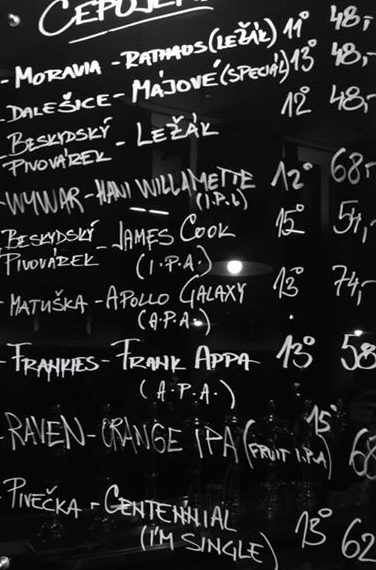 ČEPUJEME
- MORAVIA - RATHAUS (LEŽÁK) 11° 48,-
- DALEŠICE - MÁJOVÉ (SPECIÁL) 13° 48,-
BESKYDSKÝ PIVOVÁREK - LEŽÁK 12° 48,-
- WYWAR - HANI WILLAMETTE 12° 68,-
(I.P.L)
BESKYDSKÝ PIVOVÁREK - JAMES COOK 15° 54,-
(I.P.A.)
- MATUŠKA - APOLLO GALAXY 13° 74,-
(A.P.A.)
- FRANKIES - FRANK APPA 13° 58
(A.P.A.)
- RAVEN - ORANGE IPA (FRUIT I.P.A) 15° 68
- PIVEČKA - CENTENNIAL 13° 62
(I'M SINGLE)